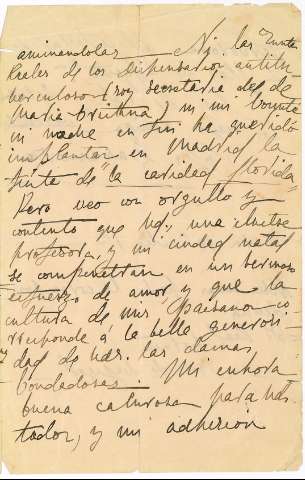 aminandolas — Ni las Juntas
Reales de los Dispensarios antitu
berculosos (soy secretaria del de
Maria Cristina) ni mi Comité
ni nadie en fin ha querido
implantar en Madrid la
fiesta de "la caridad florida"
Pero veo con orgullo y
contento que Vd., una ilustre
profesora, y mi ciudad natal
se compenetran en un hermoso
esfuerzo de amor y que la
cultura de mis paisanos co
rresponde á la bella generosi
dad de Vds. las damas
bondadosas. Mi enhora
buena calurosa para Vds.
todos, y mi adhesion